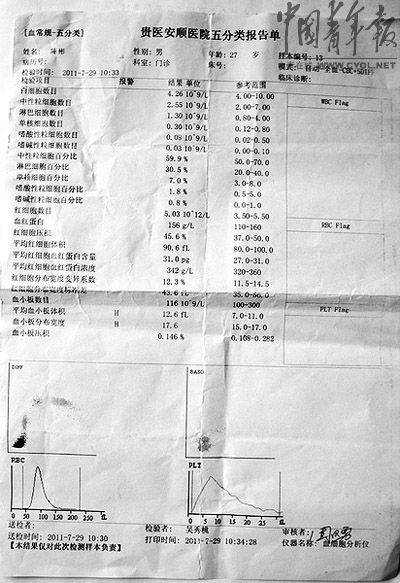 中国青年报
WWW.CYOL.NET
[血常规-五分类] 贵医安顺医院五分类报告单
姓名: 彬 性别: 男 年龄: 27 岁 样本编号: 13
病历号: 科室: 门诊 床号: 模式: 自动-全血-CBC+5DIFF
检验时间: 2011-7-29 10:33 临床诊断:
报警 结果 单位 参考范围
白细胞数目 4.26 10^9/L 4.00-10.00
中性粒细胞数目 2.55 10^9/L 2.00-7.00
淋巴细胞数目 1.30 10^9/L 0.80-4.00
单核细胞数目 0.30 10^9/L 0.12-0.80
嗜酸性粒细胞数目 10^9/L 0.02-0.50
嗜碱性粒细胞数目 0.03 10^9/L 0.00-0.10
中性粒细胞百分比 59.9 % 50.0-70.0
淋巴细胞百分比 30.5 % 20.0-40.0
单核细胞百分比 7.0 % 3.0-8.0
嗜酸性粒细胞百分比 1.8 % 0.5-5.0
嗜碱性粒细胞百分比 0.8 % 0.0-1.0
红细胞数目 5.03 10^12/L 3.50-5.50
血红蛋白 156 g/L 110-160
红细胞压积 45.6 % 37.0-50.0
平均红细胞体积 90.6 fL 80.0-100.0
平均红细胞血红蛋白含量 31.0 pg 27.0-31.0
平均红细胞血红蛋白浓度 342 g/L 320-360
红细胞分布宽度变异系数 12.3 % 11.5-14.5
红细胞分布宽度标准差 43.6 fL 35.0-56.0
血小板数目 116 10^9/L 100-300
平均血小板体积 H 12.6 fL 7.0-11.0
血小板分布宽度 H 17.6 15.0-17.0
血小板压积 0.146 % 0.108-0.282
WBC Flag
RBC Flag
PLT Flag
DIFF BASO
RBC PLT
0 50 100 150 200 250 fL 0 5 10 15 20 25 30 fL
送检者: 检验者: 吴秀桃 审核者:
送检时间: 2011-7-29 10:30 打印时间: 2011-7-29 10:34:28 仪器名称: 血细胞分析仪
【本结果仅对此次检测样本负责】